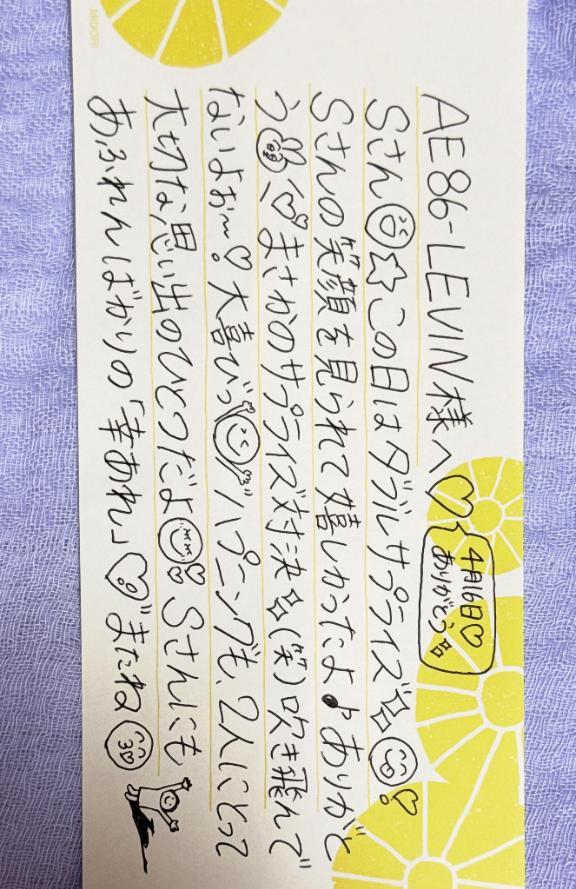 AE86-LEVIN様へ♡
4月16日♡
ありがとう
Sさん☆この日はダブルサプライズ
Sさんの笑顔を見られて嬉しかったよ♪ありがと
う♡まさかのサプライズ対決(笑)吹き飛んで
ないよぉ〜!♡大喜びっハプニングも、2人にとって
大切な思い出のひとつだよSさんにも
あふれんばかりの「幸あれ」♡またね
MIDORI